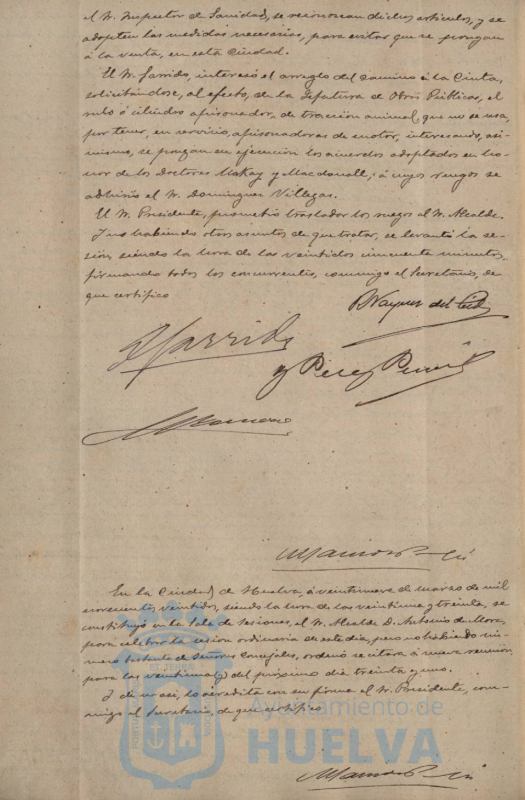 el Sr. Inspector de Sanidad, se reconozcan dichos artículos, y se
adopten las medidas necesarias, para evitar que se pongan
á la venta, en esta Ciudad.
El Sr. Garrido, interesó el arreglo del camino á la Cinta,
solicitándose, al efecto, de la Jefatura de Obras Públicas, el
rulo ó cilindro apisonador, de tracción animal, que no se usa,
por tener, en servicio, apisonadoras de motor, interesando, asi-
mismo, se pongan en ejecución los acuerdos adoptados en ho-
nor de los doctores Mackay y Macdonall; á cuyos ruegos se
adhirió el Sr. Dominguez Villegas.
El Sr. Presidente, prometió trasladar los ruegos al Sr. Alcalde.
Y no habiendo otros asuntos de que tratar, se levantó la se-
sión, siendo la hora de las veintidos cincuenta minutos,
firmando todos los concurrentes, conmigo el Secretario, de
que certifico
Vazquez del Cid
Garrido
y Perez
En la Ciudad de Huelva, á veintinueve de marzo de mil
novecientos veintidos, siendo la hora de las veintiuna y treinta, se
constituyó en la Sala de Sesiones, el Sr. Alcalde D. Antonio de Mora,
para celebrar la sesión ordinaria de este día, pero no habiendo nú-
mero bastante de Señores Concejales, ordenó se citara á nueva reunión,
para las veintiuna del próximo día treinta y uno.
Y de ser así, lo acredita con su firma el Sr. Presidente, con-
migo el Secretario, de que certifico
Ayuntamiento de
HUELVA